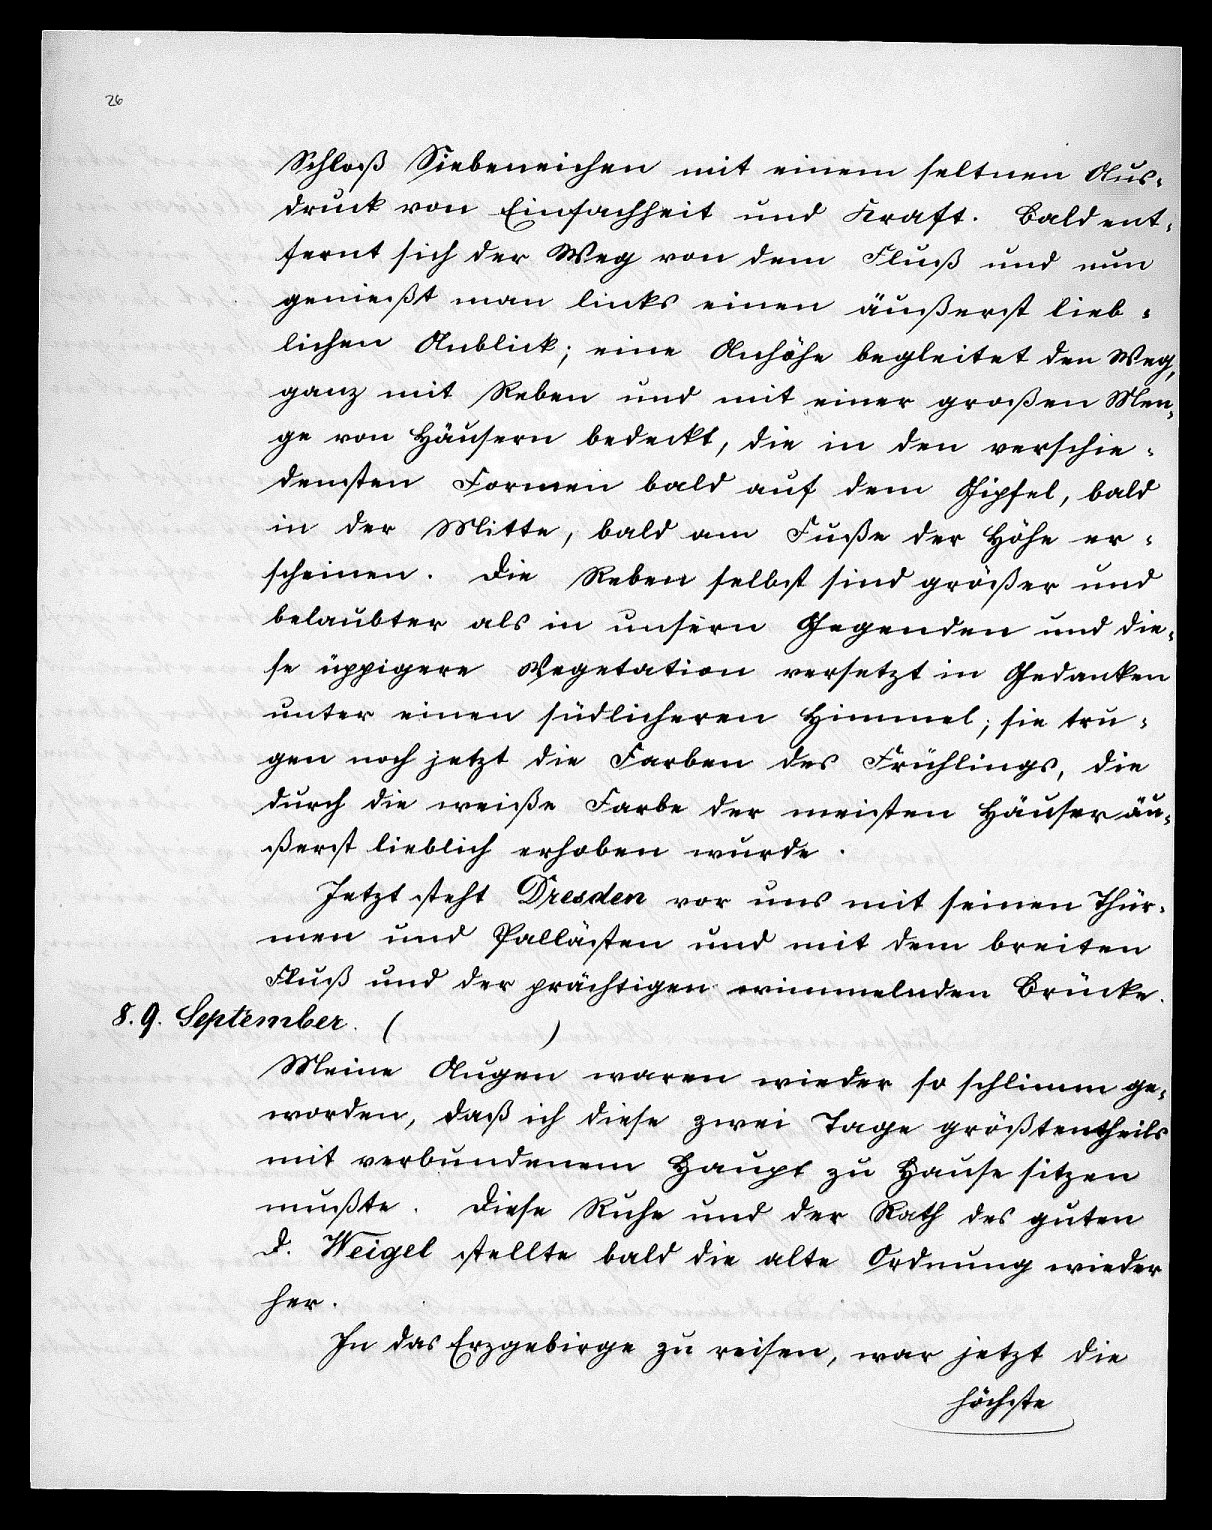 26
Schloß Siebeneichen mit einem seltnen Aus-
druck von Einfachheit und Kraft. Bald ent-
fernt sich der Weg von dem Fluß und nun
genießt man links einen äußerst lieb-
lichen Anblick; eine Anhöhe begleitet den Weg,
ganz mit Reben und mit einer großen Men-
ge von Häusern bedeckt, die in den verschie-
densten Formen bald auf dem Gipfel, bald
in der Mitte, bald am Fuße der Höhe er-
scheinen. Die Reben selbst sind größer und
belaubter als in unsern Gegenden und die-
se üppigere Vegetation versetzt in Gedanken
unter einen südlicheren Himmel; sie tru-
gen noch jetzt die Farben des Frühlings, die
durch die weiße Farbe der meisten Häuser äu-
ßerst lieblich erhoben wurde.
Jetzt steht Dresden vor uns mit seinen Thür-
men und Pallästen und mit dem breiten
Fluß und der prächtigen wimmelnden Brücke.
8. 9. September. ( )
Meine Augen waren wieder so schlimm ge-
worden, daß ich diese zwei Tage größtentheils
mit verbundenem Haupt zu Hause sitzen
mußte. Diese Ruhe und der Rath des guten
D. Weigel stellte bald die alte Ordnung wieder
her.
In das Erzgebirge zu reisen, war jetzt die
höchste